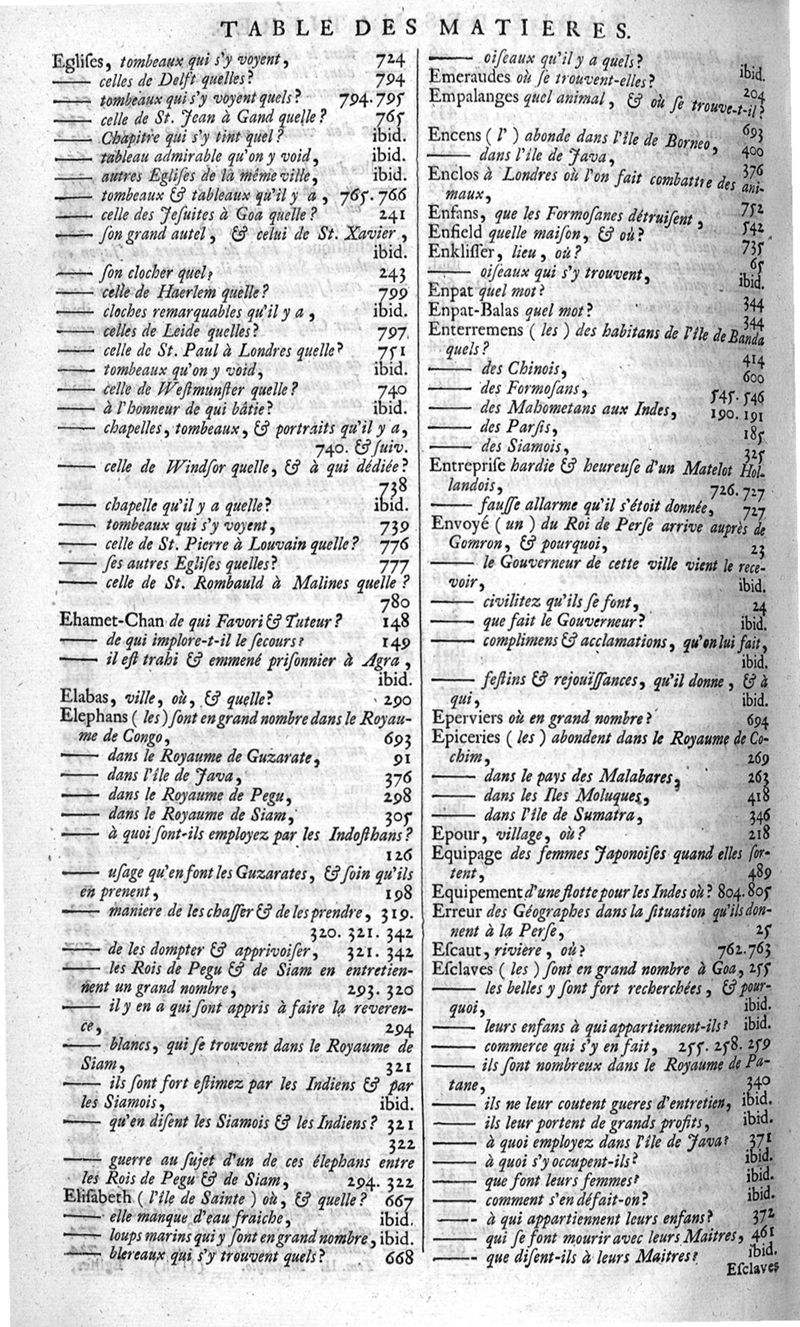 TABLE DES MATIERES.
Egliſes, tombeaux qui s'y voyent, 724
—— celles de Delft quelles? 794
—— tombeaux qui s'y voyent quels? 794. 795
—— celle de St. Jean à Gand quelle? 765
—— Chapitre qui s'y tint quel? ibid.
—— tableau admirable qu'on y void, ibid.
—— autres Egliſes de là même ville, ibid.
—— tombeaux & tableaux qu'il y a, 765. 766
—— celle des Jeſuites à Goa quelle? 241
—— ſon grand autel, & celui de St. Xavier,
ibid.
—— ſon clocher quel? 243
—— celle de Haerlem quelle? 799
—— cloches remarquables qu'il y a, ibid.
—— celles de Leide quelles? 797
—— celle de St. Paul à Londres quelle? 751
—— tombeaux qu'on y void, ibid.
—— celle de Weſtmunſter quelle? 740
—— à l'honneur de qui bâtie? ibid.
—— chapelles, tombeaux, & portraits qu'il y a,
740. & ſuiv.
—— celle de Windſor quelle, & à qui dédiée?
738
—— chapelle qu'il y a quelle? ibid.
—— tombeaux qui s'y voyent, 739
—— celle de St. Pierre à Louvain quelle? 776
—— ſes autres Egliſes quelles? 777
—— celle de St. Rombauld à Malines quelle?
780
Ehamet-Chan de qui Favori & Tuteur? 148
—— de qui implore-t-il le ſecours? 149
—— il eſt trahi & emmené priſonnier à Agra,
ibid.
Elabas, ville, où, & quelle? 290
Elephans (les) ſont en grand nombre dans le Royau-
me de Congo, 693
—— dans le Royaume de Guzarate, 91
—— dans l'île de Java, 376
—— dans le Royaume de Pegu, 298
—— dans le Royaume de Siam, 305
—— à quoi ſont-ils employez par les Indoſthans?
126
—— uſage qu'en font les Guzarates, & ſoin qu'ils
en prenent, 198
—— maniere de les chaſſer & de les prendre, 319.
320. 321. 342
—— de les dompter & apprivoiſer, 321. 342
—— les Rois de Pegu & de Siam en entretien-
nent un grand nombre, 293. 320
—— il y en a qui ſont appris à faire la reveren-
ce, 294
—— blancs, qui ſe trouvent dans le Royaume de
Siam, 321
—— ils ſont fort eſtimez par les Indiens & par
les Siamois, ibid.
—— qu'en diſent les Siamois & les Indiens? 321
322
—— guerre au ſujet d'un de ces élephans entre
les Rois de Pegu & de Siam, 294. 322
Eliſabeth (l'île de Sainte) où, & quelle? 667
—— elle manque d'eau fraiche, ibid.
—— loups marins qui y ſont en grand nombre, ibid.
—— blereaux qui s'y trouvent quels? 668
—— oiſeaux qu'il y a quels? ibid.
Emeraudes où ſe trouvent-elles? 204
Empalanges quel animal, & où ſe trouve-t-il?
693
Encens (l') abonde dans l'île de Borneo, 400
—— dans l'île de Java, 376
Enclos à Londres où l'on fait combattre des ani-
maux, 752
Enfans, que les Formoſanes détruiſent, 542
Enfield quelle maiſon, & où? 735
Enkliſſer, lieu, où? 65
—— oiſeaux qui s'y trouvent, ibid.
Enpat quel mot? 344
Enpat-Balas quel mot? 344
Enterremens (les) des habitans de l'île de Banda
quels? 414
—— des Chinois, 600
—— des Formoſans, 545. 546
—— des Mahometans aux Indes, 190. 191
—— des Parſis, 185
—— des Siamois, 325
Entrepriſe hardie & heureuſe d'un Matelot Hol-
landois, 726. 727
—— fauſſe allarme qu'il s'étoit donnée, 727
Envoyé (un) du Roi de Perſe arrive auprès de
Gomron, & pourquoi, 23
—— le Gouverneur de cette ville vient le rece-
voir, ibid.
—— civilitez qu'ils ſe font, 24
—— que fait le Gouverneur? ibid.
—— complimens & acclamations, qu'on lui fait,
ibid.
—— feſtins & rejouïſſances, qu'il donne, & à
qui, ibid.
Eperviers où en grand nombre? 694
Epiceries (les) abondent dans le Royaume de Co-
chim, 269
—— dans le pays des Malabares, 263
—— dans les Iles Moluques, 418
—— dans l'île de Sumatra, 346
Epour, village, où? 218
Equipage des femmes Japonoiſes quand elles ſor-
tent, 489
Equipement d'une flotte pour les Indes où? 804. 805
Erreur des Géographes dans la ſituation qu'ils don-
nent à la Perſe, 25
Eſcaut, riviere, où? 762. 763
Eſclaves (les) ſont en grand nombre à Goa, 255
—— les belles y ſont fort recherchées, & pour-
quoi, ibid.
—— leurs enfans à qui appartiennent-ils? ibid.
—— commerce qui s'y en fait, 255. 258. 259
—— ils ſont nombreux dans le Royaume de Pa-
tane, 340
—— ils ne leur coutent gueres d'entretien, ibid.
—— ils leur portent de grands profits, ibid.
—— à quoi employez dans l'île de Java? 371
—— à quoi s'y occupent-ils? ibid.
—— que font leurs femmes? ibid.
—— comment s'en défait-on? ibid.
—— à qui appartiennent leurs enfans? 372
—— qui ſe font mourir avec leurs Maitres, 461
—— que diſent-ils à leurs Maitres? ibid.
Eſclaves